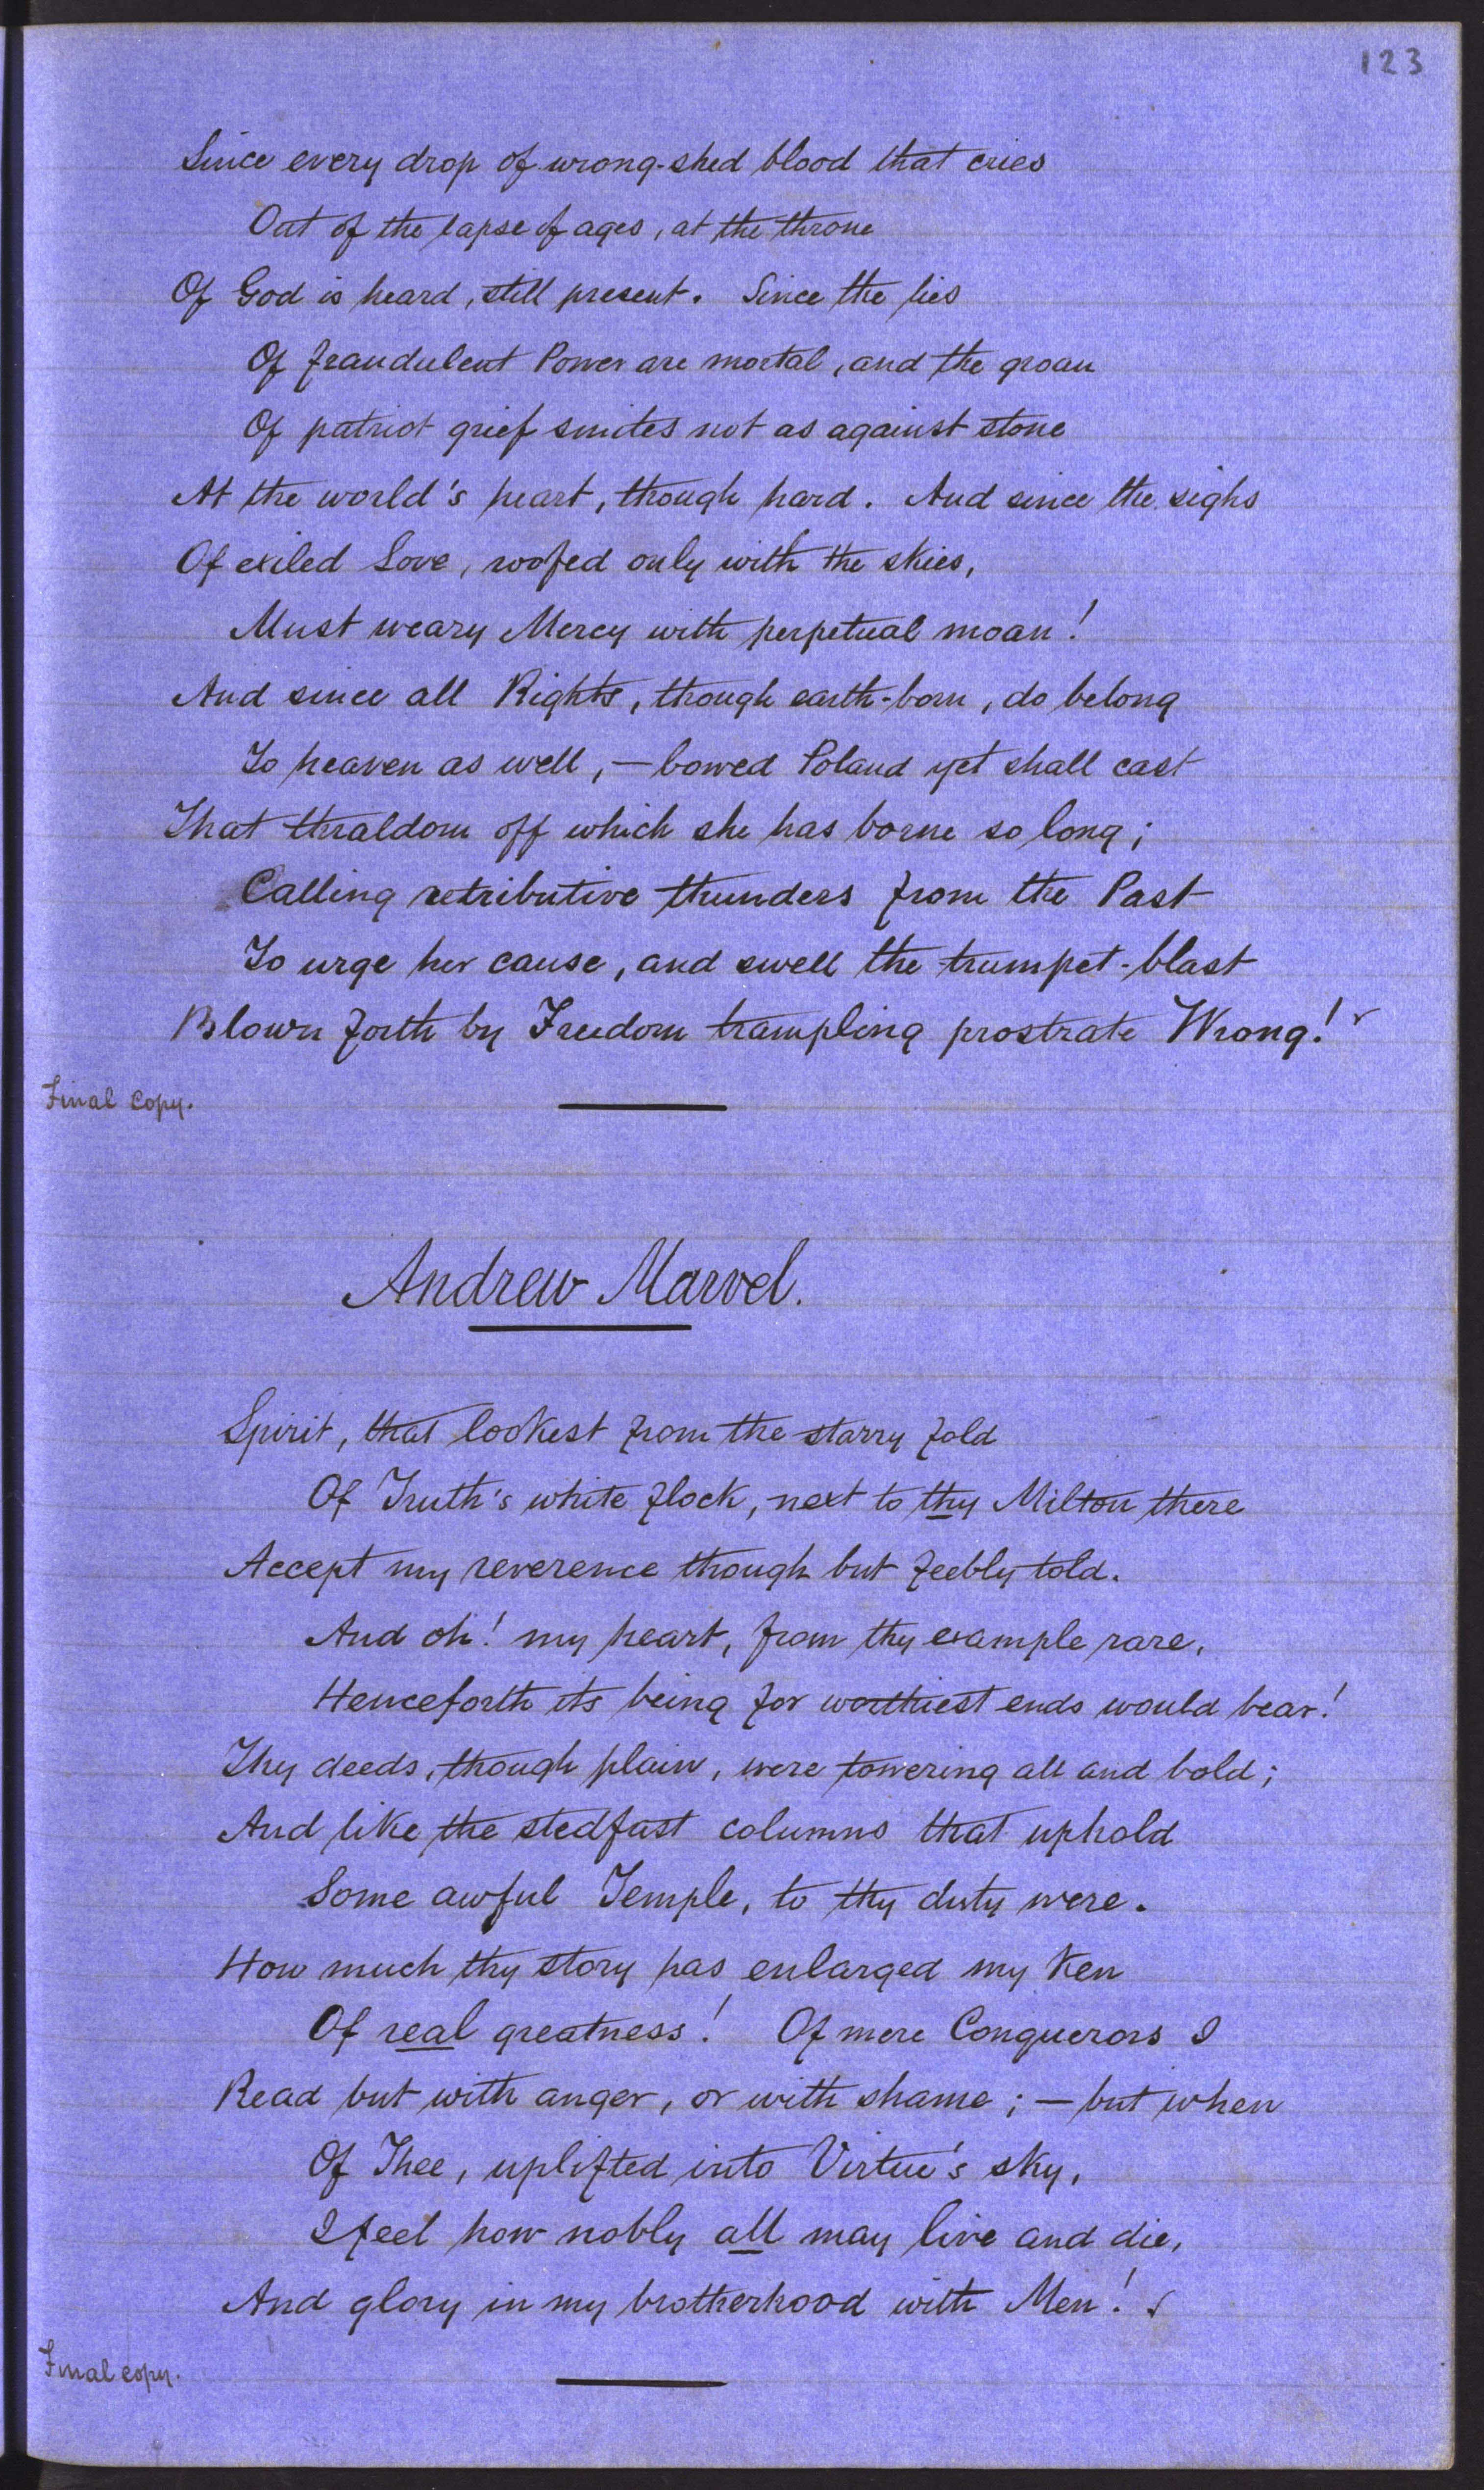 123
Since every drop of wrong-shed blood that cries
Out of the lapse of ages, at the throne
Of God is heard, still present. Since the lies
Of fraudulent Power are mortal, and the groan
Of patriot grief smites not as against stone
At the world's heart, though hard. And since the sighs
Of exiled Love, roofed only with the skies,
Must weary Mercy with perpetual moan!
And since all Rights, though earth-born, do belong
To heaven as well, — bowed Poland yet shall cast
That thraldom off which she has borne so long;
Calling retributive thunders from the Past
To urge her cause, and swell the trumpet-blast
Blown forth by Freedom trampling prostrate Wrong!
Final Copy.
Andrew Marvel.
Spirit, that lookest from the starry fold
Of Truth's white flock, next to thy Milton there
Accept my reverence though but feebly told.
And oh! my heart, from thy example rare,
Henceforth its being for worthiest ends would bear!
Thy deeds, though plain, were towering all and bold;
And like the stedfast columns that uphold
Some awful Temple, to thy duty were.
How much thy story has enlarged my ken
Of real greatness! Of mere Conquerors I
Read but with anger, or with shame; — but when
Of Thee, uplifted into Virtue's sky,
I feel how nobly all may live and die,
And glory in my brotherhood with Men!
Final copy.